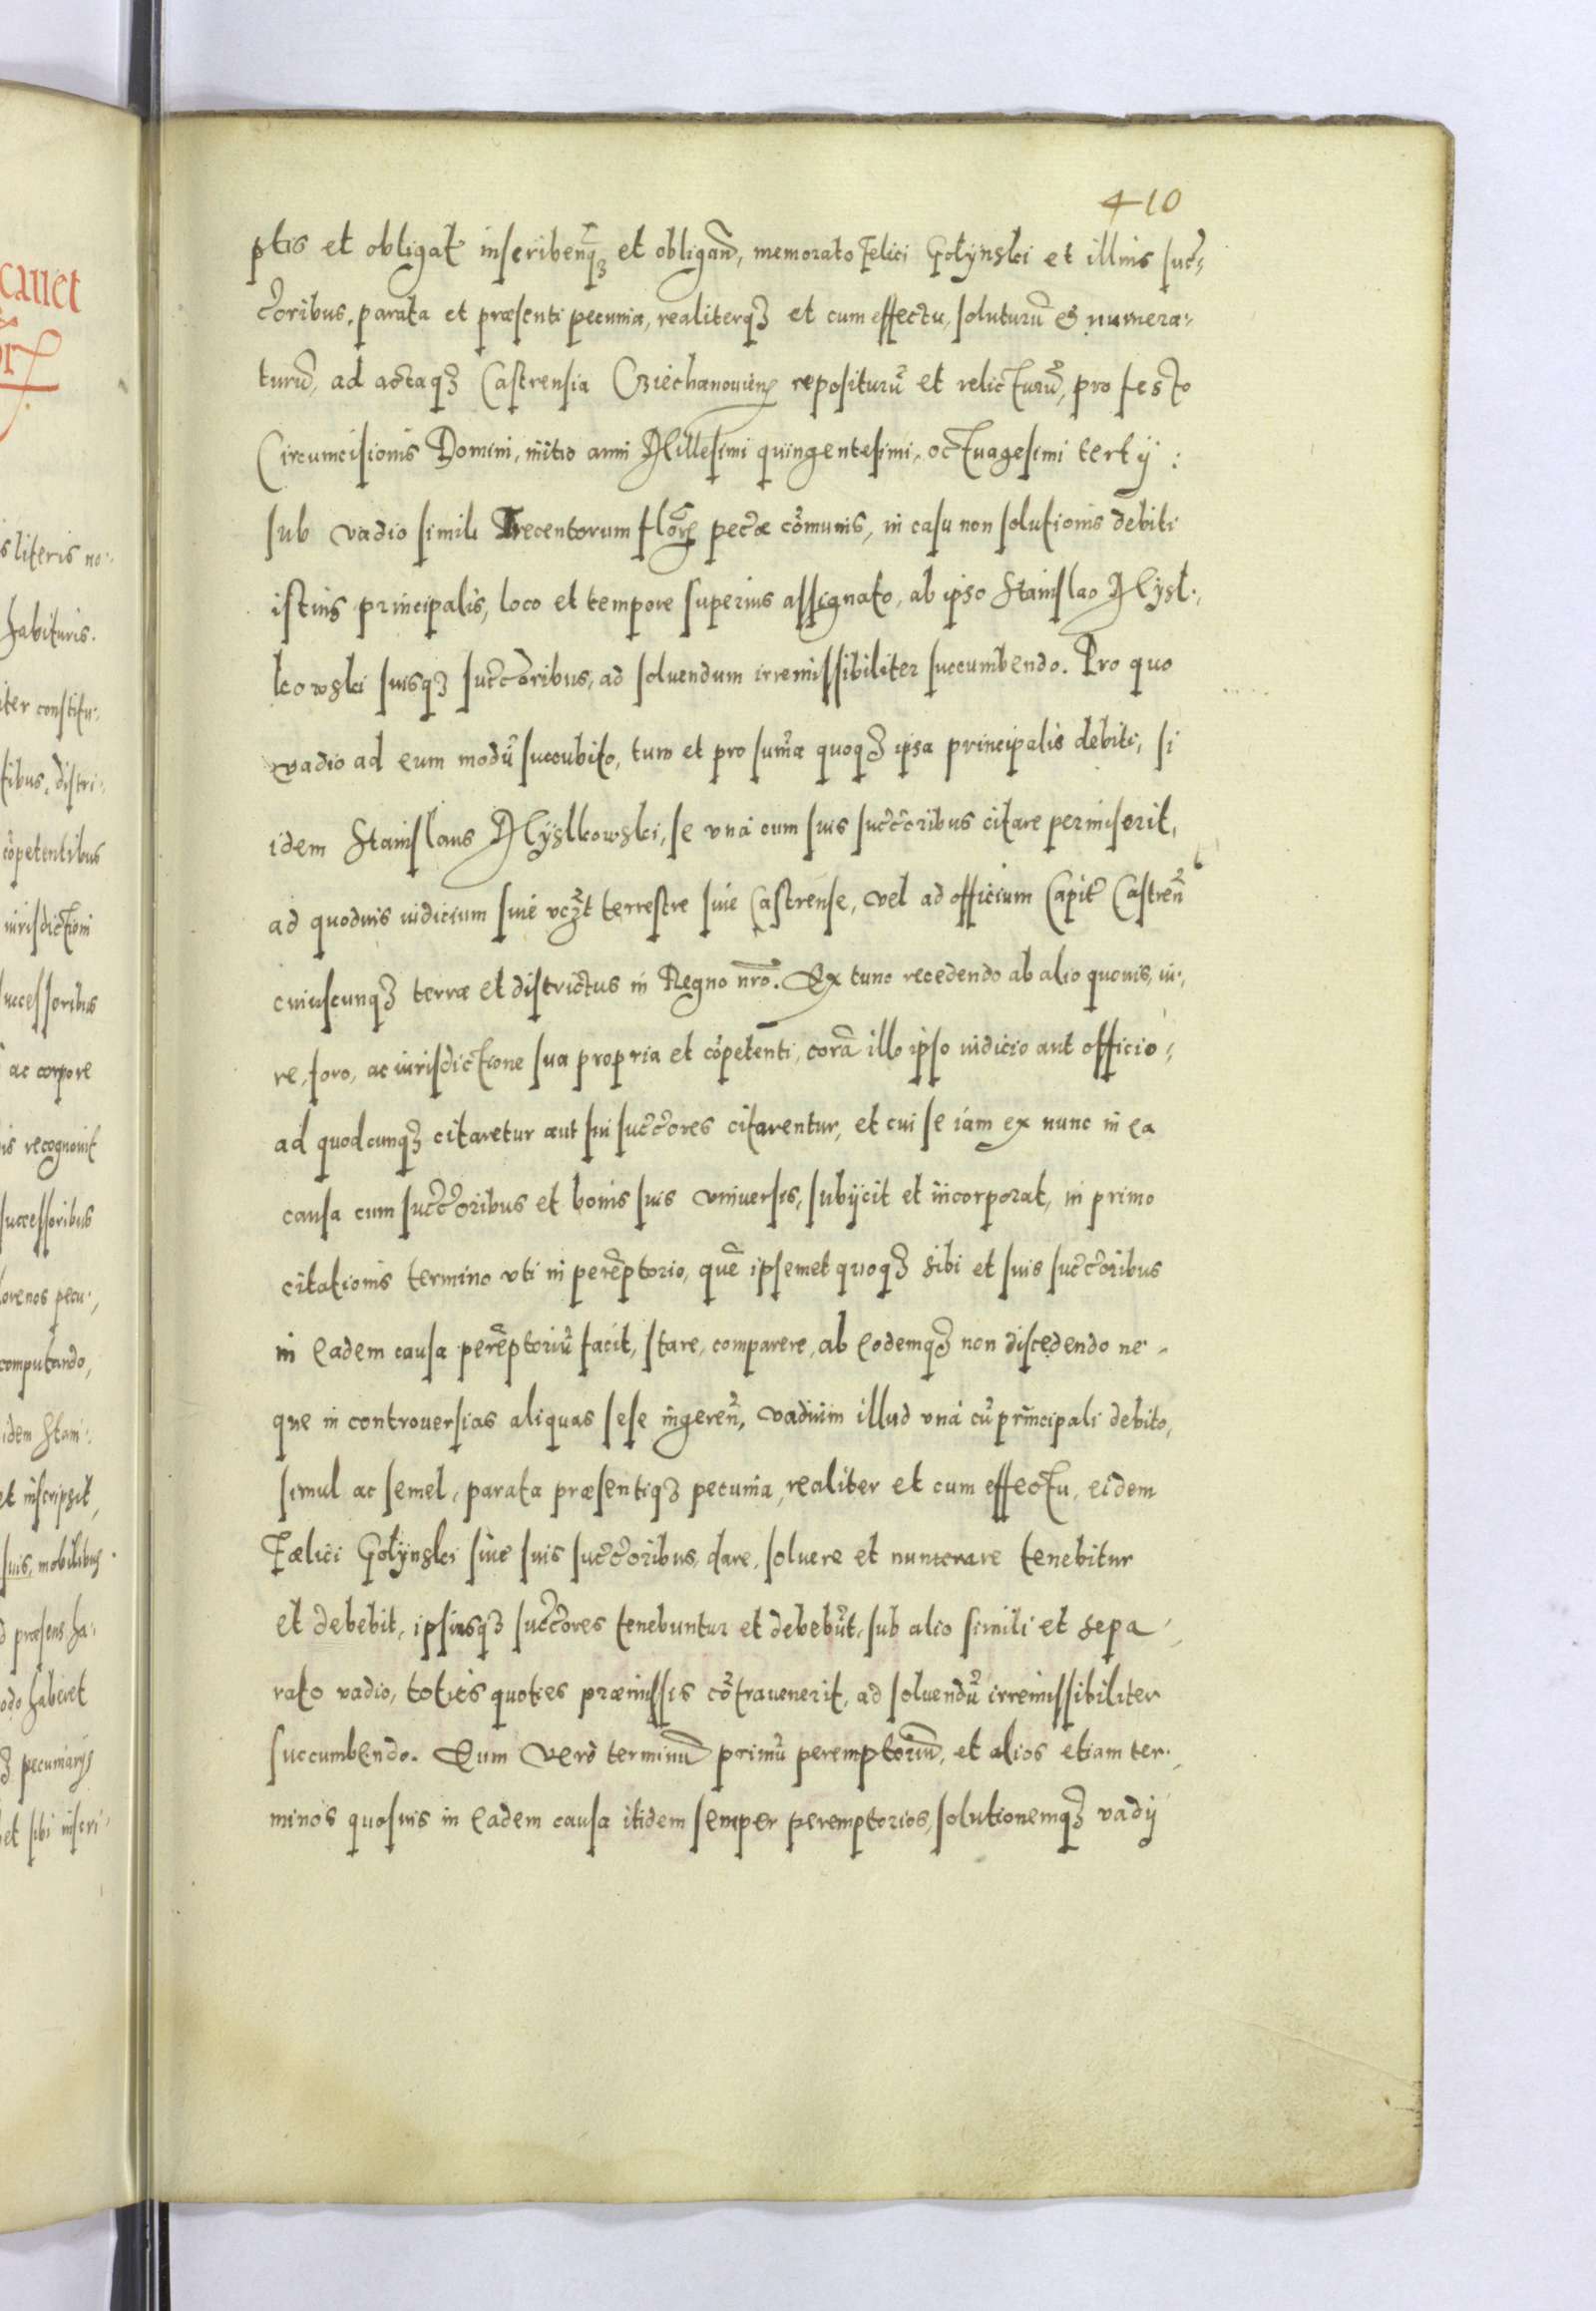 410
ptis et obligat̃ inscribenq̃ʒ et obligan̄, memorato Felici Gołynski et illius suc̃,
c̃oribus, parata et præsenti pecunia, realiterqʒ et cum effectu, soluturū & numera,
turū, ad actaqʒ Castrensia Cziechanouieñ repositurū et relicturū, pro festo
Circumcisionis Domini, initio anni Millesimi quingentesimi, octuagesimi tertij:
sub vadio simili Trecentorum florẽ pec̃æ cōmunis, in casu non solutionis debiti
istius principalis, loco et tempore superius assignato, ab ipso Stanislao Mysł,
kowski suisqʒ suc̃c̃oribus, ad soluendum irremissibiliter succumbendo. Pro quo
vadio ad eum modū succubito, tum et pro sum̃æ quoqʒ ipsa principalis debiti, si
idem Stanislaus Mysłkowski, se vnà cum suis suc̃c̃oribus citare permiserit,
ad quoduis iudicium siue vcʒ̃t terrestre siue Castrense, vel ad officium Capit̃ Castreñ
cuiuscunqʒ terræ et districtus in Regno nr̃o. Ex tunc recedendo ab alio quouis, iu,
re, foro, ac iurisdictione sua propria et cōpetenti, corā illo ipso iudicio aut officio,
ad quodcunqʒ citaretur aut sui suc̃c̃ores citarentur, et cui se iam ex nunc in ea
causa cum suc̃c̃oribus et bonis suis vniuersis, subijcit et incorporat, in primo
citationis termino vti in perẽptorio, quẽ ipsemet quoqʒ sibi et suis suc̃c̃oribus
in eadem causa perẽptoriū facit, stare, comparere, ab eodemqʒ non discedendo ne,
que in controuersias aliquas sese ingereñ, vadium illud vnà cū principali debito,
simul ac semel, parata præsentiqʒ pecunia, realiter et cum effectu, eidem
Fælici Gołynski siue suis suc̃c̃oribus, dare, soluere et numerare tenebitur
et debebit, ipsiusqʒ suc̃c̃ores tenebuntur et debebūt, sub alio simili et sepa,
rato vadio, toties quoties præmissis cōtrauenerit, ad soluendū irremissibiliter
succumbendo. Eum verò terminū primū peremptoriū, et alios etiam ter,
minos quosuis in eadem causa itidem semper peremptorios, solutionemqʒ vadij